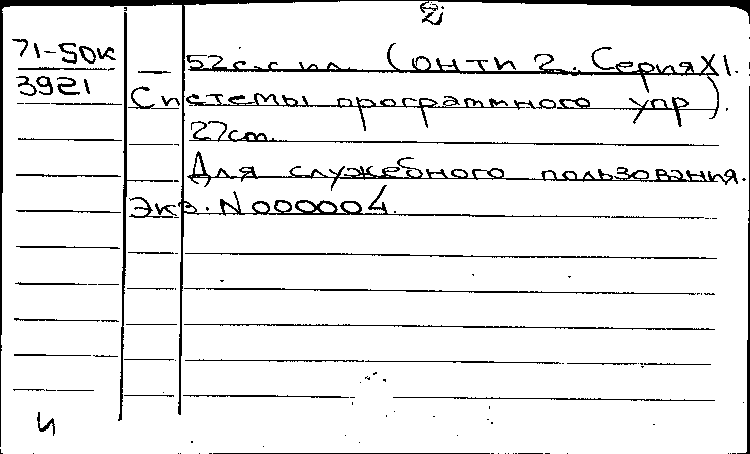 2
71-50к
3921
52с.с ил. (ОНТИ 2. Серия XI.
Системы программного упр).
27см.
Для служебного пользования.
Экз. N 000004.
и